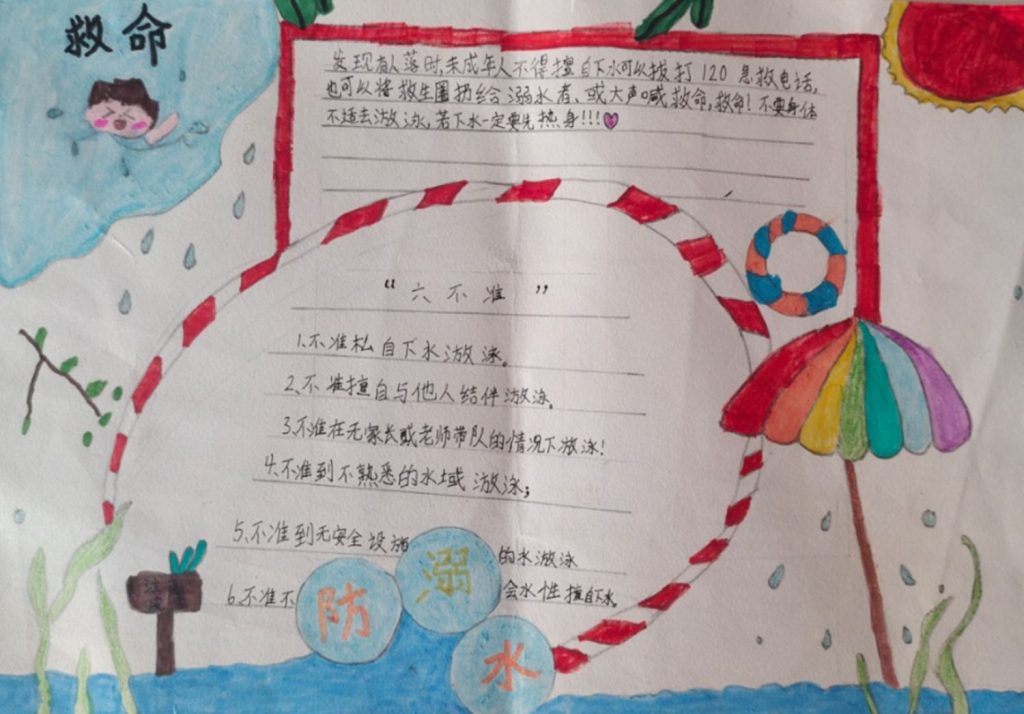 救命
发现有人落时,未成年人不得擅自下水可以拔打120急救电话,
也可以将救生圈扔给溺水者、或大声喊救命,救命!不要身体
不适去游泳,若下水一定要先热身!!!
“六不准”
1.不准私自下水游泳。
2.不准擅自与他人结伴游泳。
3.不准在无家长或老师带队的情况下游泳!
4.不准到不熟悉的水域游泳;
5、不准到无安全设施的水游泳
6.不准不会水性擅自下水。
防溺水